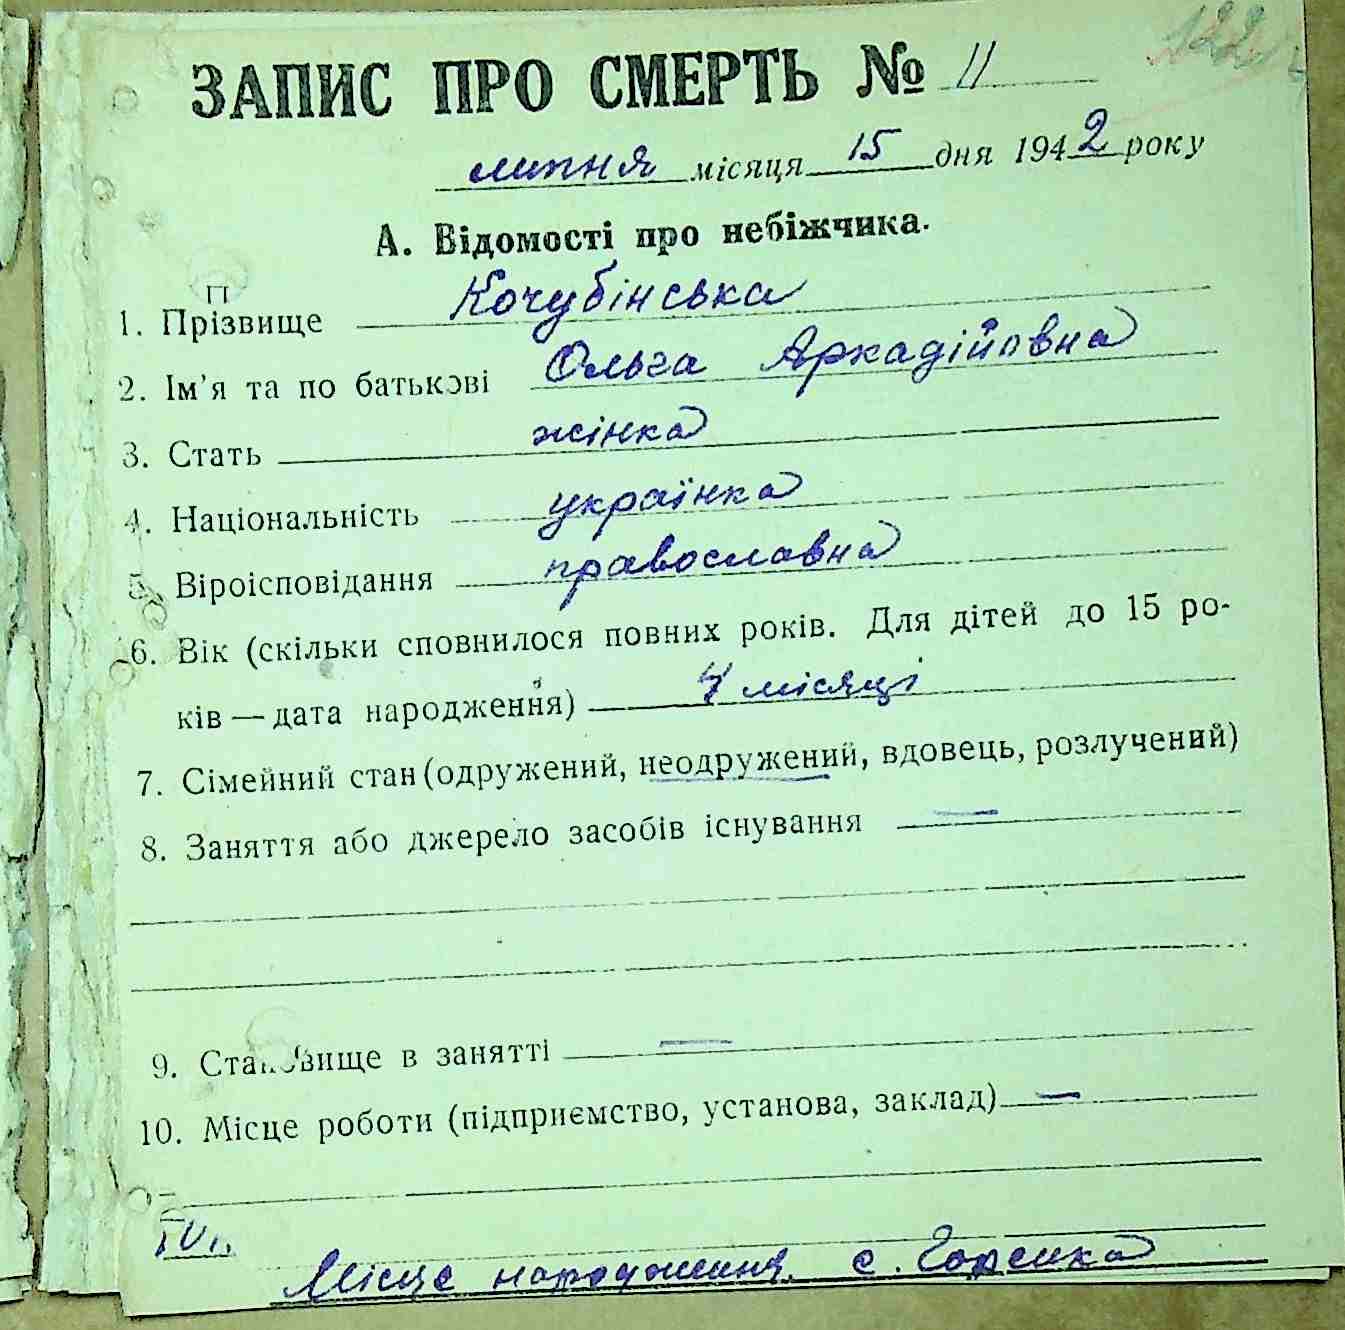 122
ЗАПИС ПРО СМЕРТЬ № 11
липня місяця 15 дня 1942 року
А. Відомості про небіжчика.
П
1. Прізвище Кочубінська
2. Ім'я та по батькові Ольга Аркадійовна
3. Стать жінка
4. Національність українка
5. Віроісповідання православна
6. Вік (скільки сповнилося повних років. Для дітей до 15 ро-
ків — дата народження) 4 місяці
7. Сімейний стан (одружений, неодружений, вдовець, розлучений)
8. Заняття або джерело засобів існування —
9. Становище в занятті —
10. Місце роботи (підприємство, установа, заклад) —
IV.
Місце народження с. Горенка